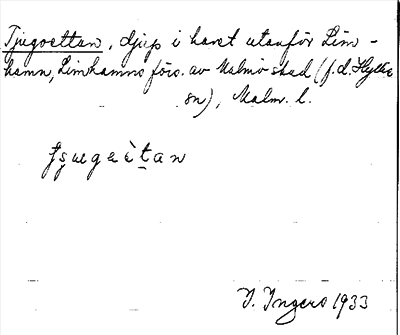 Tjugoettan, djup i havet utanför Lim-
hamn, Limhamns förs. av Malmö stad (f.d. Hyllie
sn), Malm. l.
I. Ingers 1933